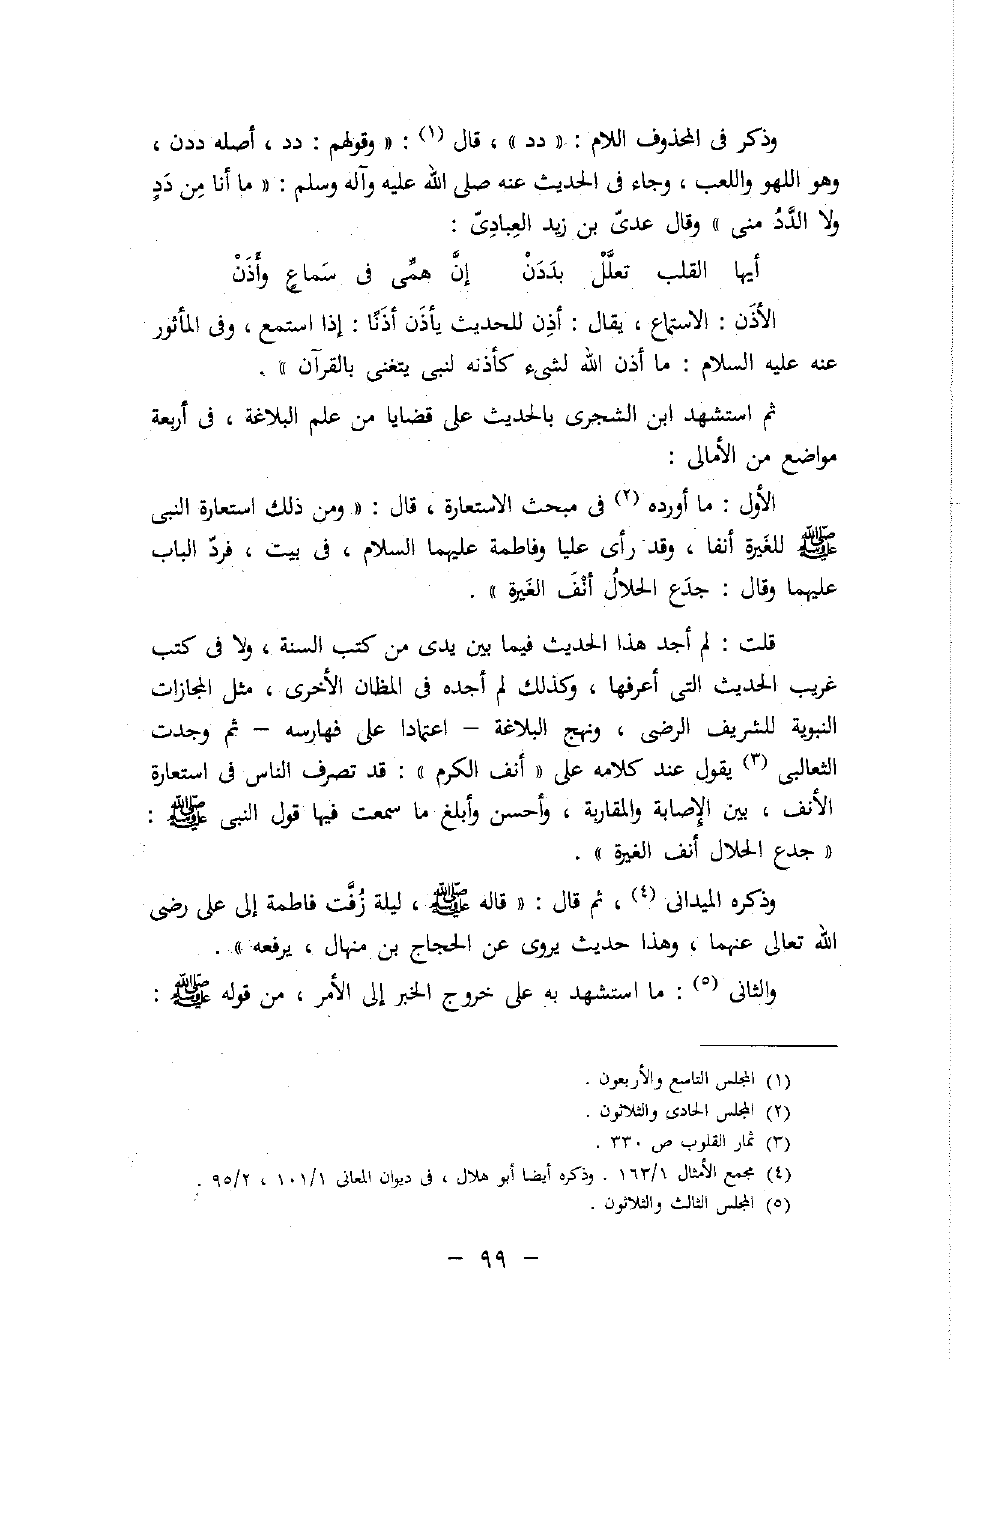 وذكر فى المحذوف اللام : « دد » ، قال (١) : « وقولهم : دد ، أصله ددن ،
وهو اللهو واللعب ، وجاء فى الحديث عنه صلى الله عليه وآله وسلم : « ما أنا مِن دَدٍ
ولا الدَّدُ منى » وقال عدىّ بن زيد العِبادِىّ :
أيها القلب تعلَّلْ بدَدَنْ إنَّ همِّى فى سَماعٍ وأَذَنْ
الأذَن : الاستماع ، يقال : أذِن للحديث يأذَن أذَنًا : إذا استمع ، وفى المأثور
عنه عليه السلام : ما أذن الله لشىء كأذنه لنبى يتغنى بالقرآن » .
ثم استشهد ابن الشجرى بالحديث على قضايا من علم البلاغة ، فى أربعة
مواضع من الأمالى :
الأول : ما أورده (٢) فى مبحث الاستعارة ، قال : « ومن ذلك استعارة النبى
ﷺ للغَيرة أنفا ، وقد رأى عليا وفاطمة عليهما السلام ، فى بيت ، فردّ الباب
عليهما وقال : جدَع الحلالُ أنْفَ الغَيرة » .
قلت : لم أجد هذا الحديث فيما بين يدى من كتب السنة ، ولا فى كتب
غريب الحديث التى أعرفها ، وكذلك لم أجده فى المظان الأخرى ، مثل المجازات
النبوية للشريف الرضى ، ونهج البلاغة – اعتمادا على فهارسه – ثم وجدت
الثعالبى (٣) يقول عند كلامه على « أنف الكرم » : قد تصرف الناس فى استعارة
الأنف ، بين الإصابة والمقاربة ، وأحسن وأبلغ ما سمعت فيها قول النبى ﷺ :
« جدع الحلال أنف الغيرة » .
وذكره الميدانى (٤) ، ثم قال : « قاله ﷺ ، ليلة زُفَّت فاطمة إلى على رضى
الله تعالى عنهما ، وهذا حديث يروى عن الحجاج بن منهال ، يرفعه » .
والثانى (٥) : ما استشهد به على خروج الخبر إلى الأمر ، من قوله ﷺ :
(١) المجلس التاسع والأربعون .
(٢) المجلس الحادى والثلاثون .
(٣) ثمار القلوب ص ٣٣٠ .
(٤) مجمع الأمثال ١٦٣/١ . وذكره أيضا أبو هلال ، فى ديوان المعانى ١٠١/١ ، ٩٥/٢ .
(٥) المجلس الثالث والثلاثون .
– ٩٩ –